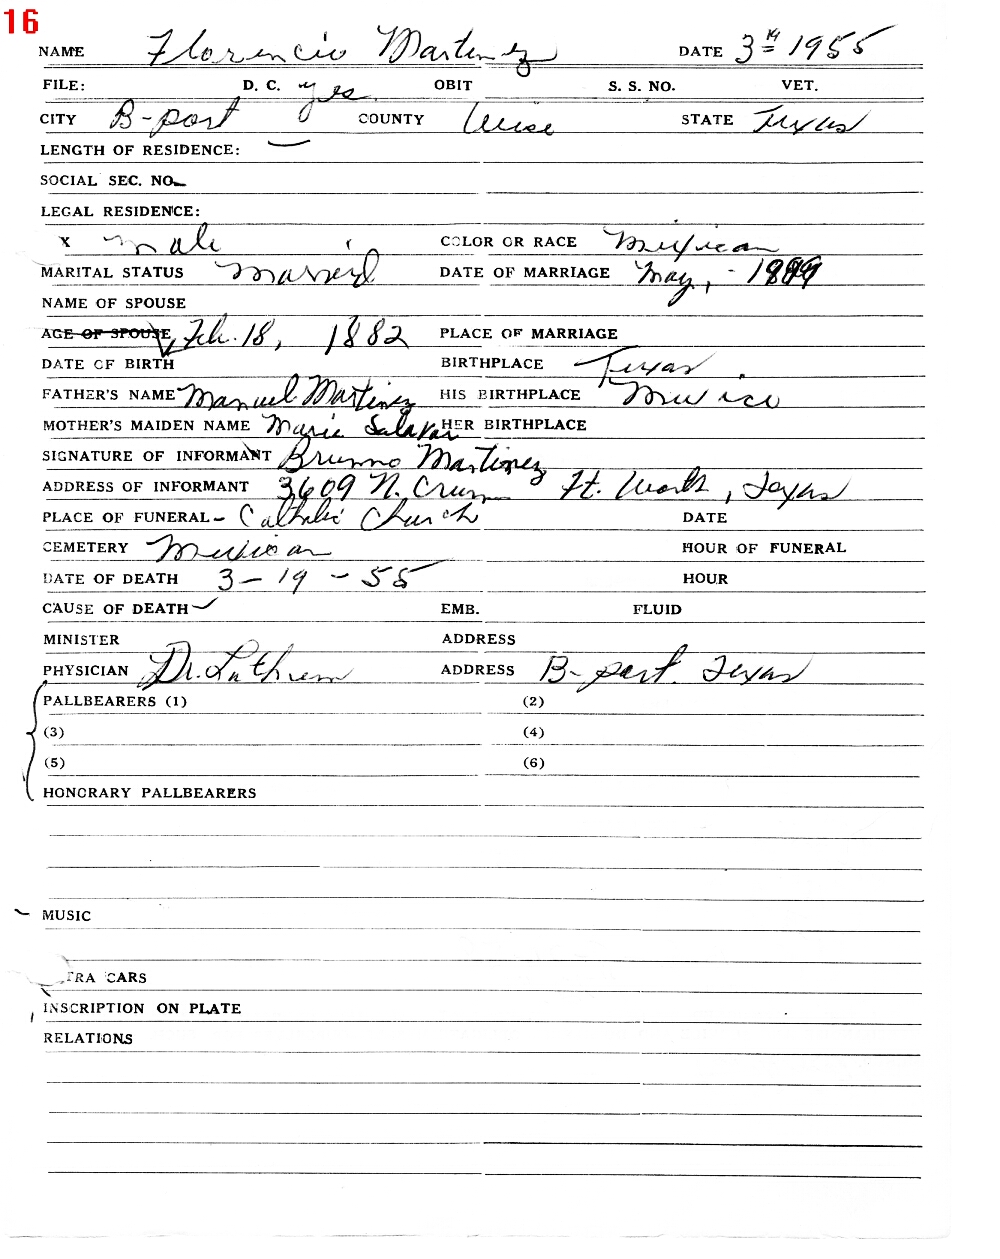 16
NAME Florencio Martinez DATE 3 19 1955
FILE: D. C. yes OBIT S. S. NO. VET.
CITY B-port COUNTY Wise STATE Texas
LENGTH OF RESIDENCE: —
SOCIAL SEC. NO.
LEGAL RESIDENCE:
X male COLOR OR RACE Mexican
MARITAL STATUS Married DATE OF MARRIAGE May, - 
NAME OF SPOUSE
AGE OF SPOUSE Feb. 18, 1882 PLACE OF MARRIAGE
DATE OF BIRTH BIRTHPLACE Texas
FATHER'S NAME Manuel Martinez HIS BIRTHPLACE Mexico
MOTHER'S MAIDEN NAME Marie Salazar HER BIRTHPLACE
SIGNATURE OF INFORMANT Brunno Martinez
ADDRESS OF INFORMANT 3609 N. Crump Ft. Worth, Texas
PLACE OF FUNERAL - Catholic Church DATE
CEMETERY Mexican HOUR OF FUNERAL
DATE OF DEATH 3 - 19 - 55 HOUR
CAUSE OF DEATH EMB. FLUID
MINISTER ADDRESS
PHYSICIAN Dr. ADDRESS B-port. Texas
PALLBEARERS (1) (2)
(3) (4)
(5) (6)
HONORARY PALLBEARERS
MUSIC
TRA CARS
INSCRIPTION ON PLATE
RELATIONS